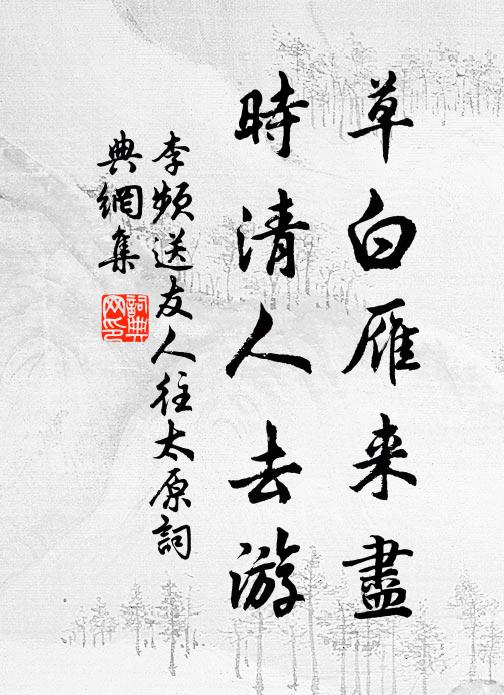 草白雁来盡
時清人去游
李频送友人往太原詞
典網集
詞典
网印